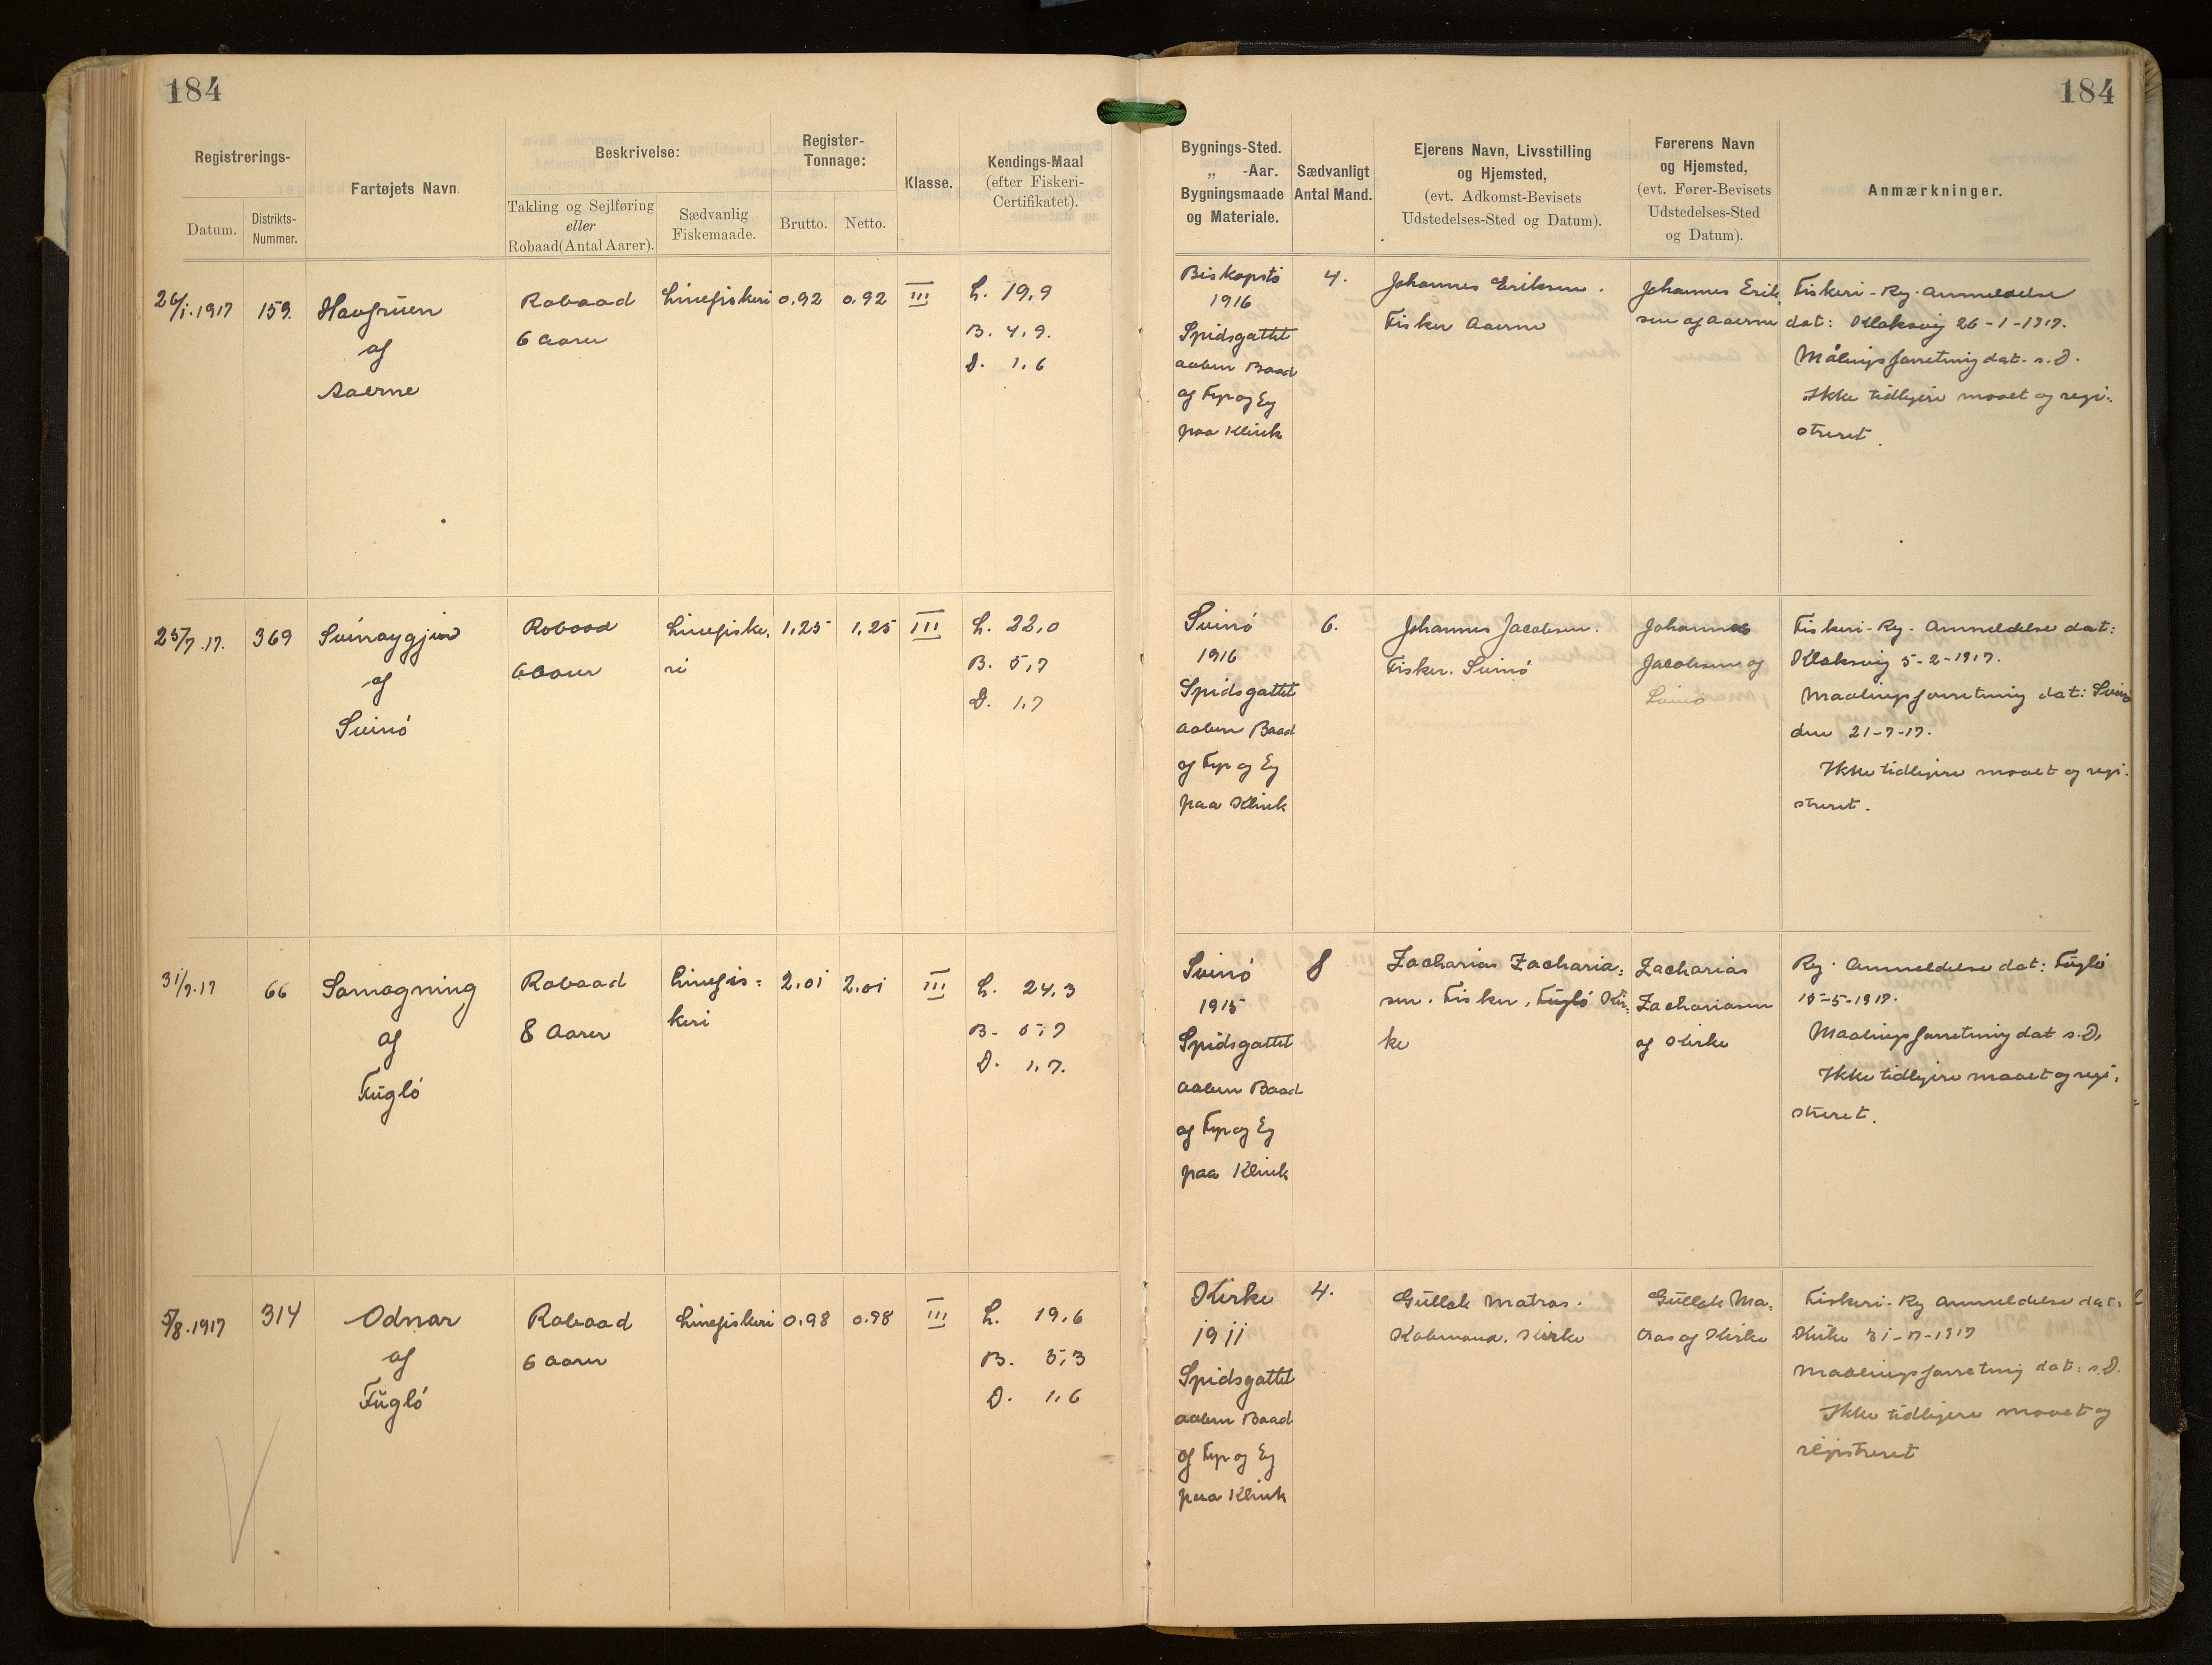 184
184
Registrerings-
Datum.
Distrikts-
Nummer.
Fartøjets Navn.
Beskrivelse:
Takling og Sejlføring
eller
Robaad (Antal Aarer).
Sædvanlig
Fiskemaade.
Register-
Tonnage:
Brutto.
Netto.
Klasse.
Kendings-Maal
(efter Fiskeri-
Certifikatet).
Bygnings-Sted.
„ -Aar.
Bygningsmaade
og Materiale.
Sædvanligt
Antal Mand.
Ejerens Navn, Livsstilling
og Hjemsted,
(evt. Adkomst-Bevisets
Udstedelses-Sted og Datum).
Førerens Navn
og Hjemsted,
(evt. Fører-Bevisets
Udstedelses-Sted
og Datum).
Anmærkninger.
26/1.1917
159.
Havfruen
af
Aaerne
Robaad
6 Aarer
Linefiskeri
0.92
0.92
III
L. 19,9
B. 4,9.
D. 1,6
Biskopstö
1916
Spidsgattet
aaben Baad
af Fyr og Eg
paa Klink
4.
Johannes Eriksen.
Fisker Aaerne
Johannes Erik
sen af Aaerne
Fiskeri-Rg. Anmeldelse
dat: Klaksvig 26-1-1917.
Målingsforretning dat. s.D.
Ikke tidligere maalt og regi:
streret.
25/7.17.
369
Svinoygjin
af
Svinö
Robaad
6 Aarer
Linefiske:
ri
1,25
1,25
III
L. 22,0
B. 5,7
D. 1,7
Svinö
1916
Spidsgattet
aaben Baad
af Fyr og Eg
paa Klink
6.
Johannes Jacobsen.
Fisker. Svinö
Johannes
Jacobsen af
Svinö
Fiskeri-Rg. Anmeldelse dat:
Klaksvig 5-2-1917.
Maalingsforretning dat: Svinö
den 21-7-17.
Ikke tidligere maalt og regi:
streret.
31/7.17
66
Samogning
af
Fuglö
Robaad
8 Aarer
Linefis:
keri
2,01
2,01
III
L. 24,3
B. 5,7
D. 1,7.
Svinö
1915
Spidsgattet
aaben Baad
af Fyr og Eg
paa Klink
8
Zacharias Zacharia:
sen. Fisker, Fuglö Kir:
ke
Zacharias
Zachariasen
af Kirke
Rg. Anmeldelse dat: Fuglö
15-5-1917.
Maalingsforretning dat s.D.
Ikke tidligere maalt og regi:
streret.
5/8.1917
314
Odnar
af
Fuglö
Robaad
6 Aarer
Linefiskeri
0.98
0.98
III
L. 19,6
B. 5,3
D. 1,6
Kirke
1911
Spidsgattet
aaben Baad
af Fyr og Eg
paa Klink
4.
Gullak Matras.
Købmand. Kirke
Gullak Ma:
tras af Kirke
Fiskeri-Rg Anmeldelse dat:
Kirke 31-7-1917
Maalingsforretning dat: s.D.
Ikke tidligere maalt og
registreret